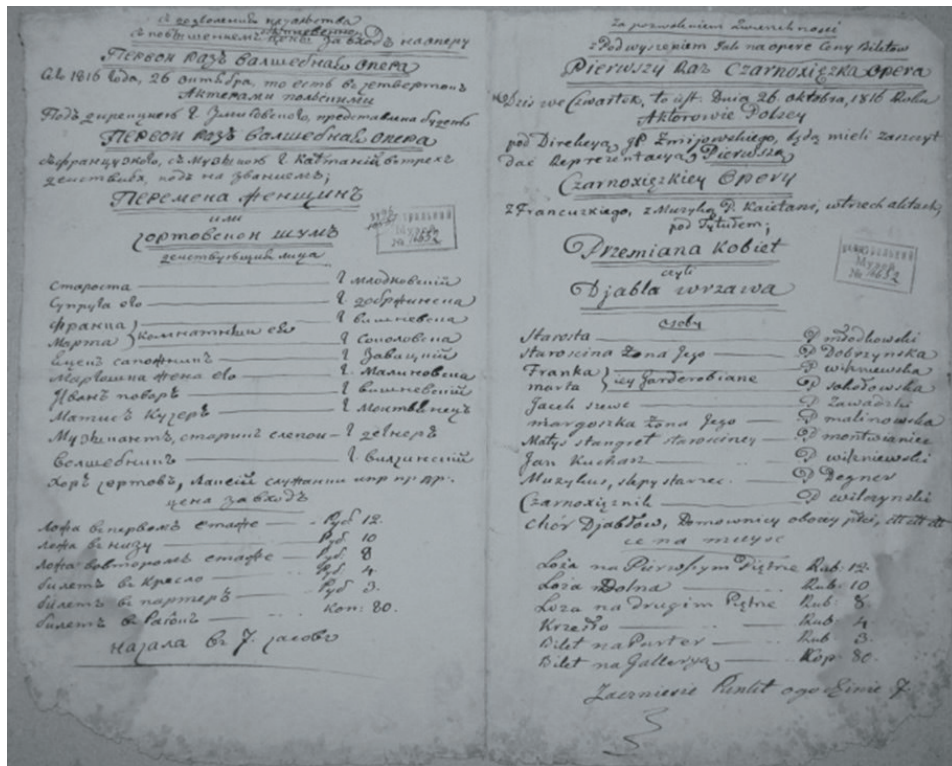 съ дозволенія
съ повышеніемъ цены за входъ на оперу
Первой разъ валшебная опера
1816 года, 26 октября, то есть в четвертокъ
Актерами польскими
Подъ дирекцией Г. представлена будетъ
Первой разъ валшебная опера
съ французкого, съ музыкою Г. в трехъ
действияхъ, подъ названиемъ;
Перемена женщинъ
или
чортовской шумъ
действующия лица
Староста Г млодковский
Супруга его Г добржинска
Франца Г вишневска
Марта } комнатныи его Г Соколовска
сапожникъ Г Завацкий
жена его Г Малиновска
Иванъ поваръ Г вишневский
Матисъ Кучеръ Г
Музыкантъ, старикъ слепои Г дегнеръ
Волшебникъ Г
Хоръ чортовъ,
цена за входъ
ложа в первомъ етаже Руб 12.
ложа в низу Руб 10
ложа во втором етаже Руб 8
билетъ в Кресло Руб 4
билетъ в партеръ Руб 3.
билетъ в Коп: 80.
Начало в 7. часовъ
Za pozwoleniem Zwierzchności
z Podwyszeniem Jak na opere Ceny Biletow
Pierwszy Raz Czarnoxięzka opera
Dzis we Czwartek, to iest Dnia 26. oktobra, 1816 Roku
Aktorowie Polscy
pod Direkcyą JP Żmijowskiego, będą mieli zaszczyt
dać Reprezentacyą Pierwszą
Czarnoxięzkiey Opery
z Francuzkiego, z Muzyką P. Kaietani, w trzech aktach,
pod Tytułem;
Przemiana Kobiet
czyli
Djabla wrzawa
osoby
Starosta P młodkowski
Staroscina Zona Jego P Dobrzynska
Franka P wiszniewska
marta } iey Garderobiane P sokołowska
Jacek szewc P Zawadzki
margoszka Zona Jego P malinowska
Matys stangret starosciney P
Jan Kucharz P wiszniewski
Muzykus, slepy starzec P Degner
Czarnoxięznik P wilczynski
Chor Djabłów, Domownicy oboey płci,
cena mieysc
Loża na Pierwszym Piętrze Rub. 12.
Loża Dolna Rub: 10
Loza na drugim Piętrze Rub: 8
Krzesło Rub 4
Bilet na Parter Rub 3.
Bilet na Galleryą Kop: 80.
Zacznie sie Punkt o godzinie 7.
Музей
Музей